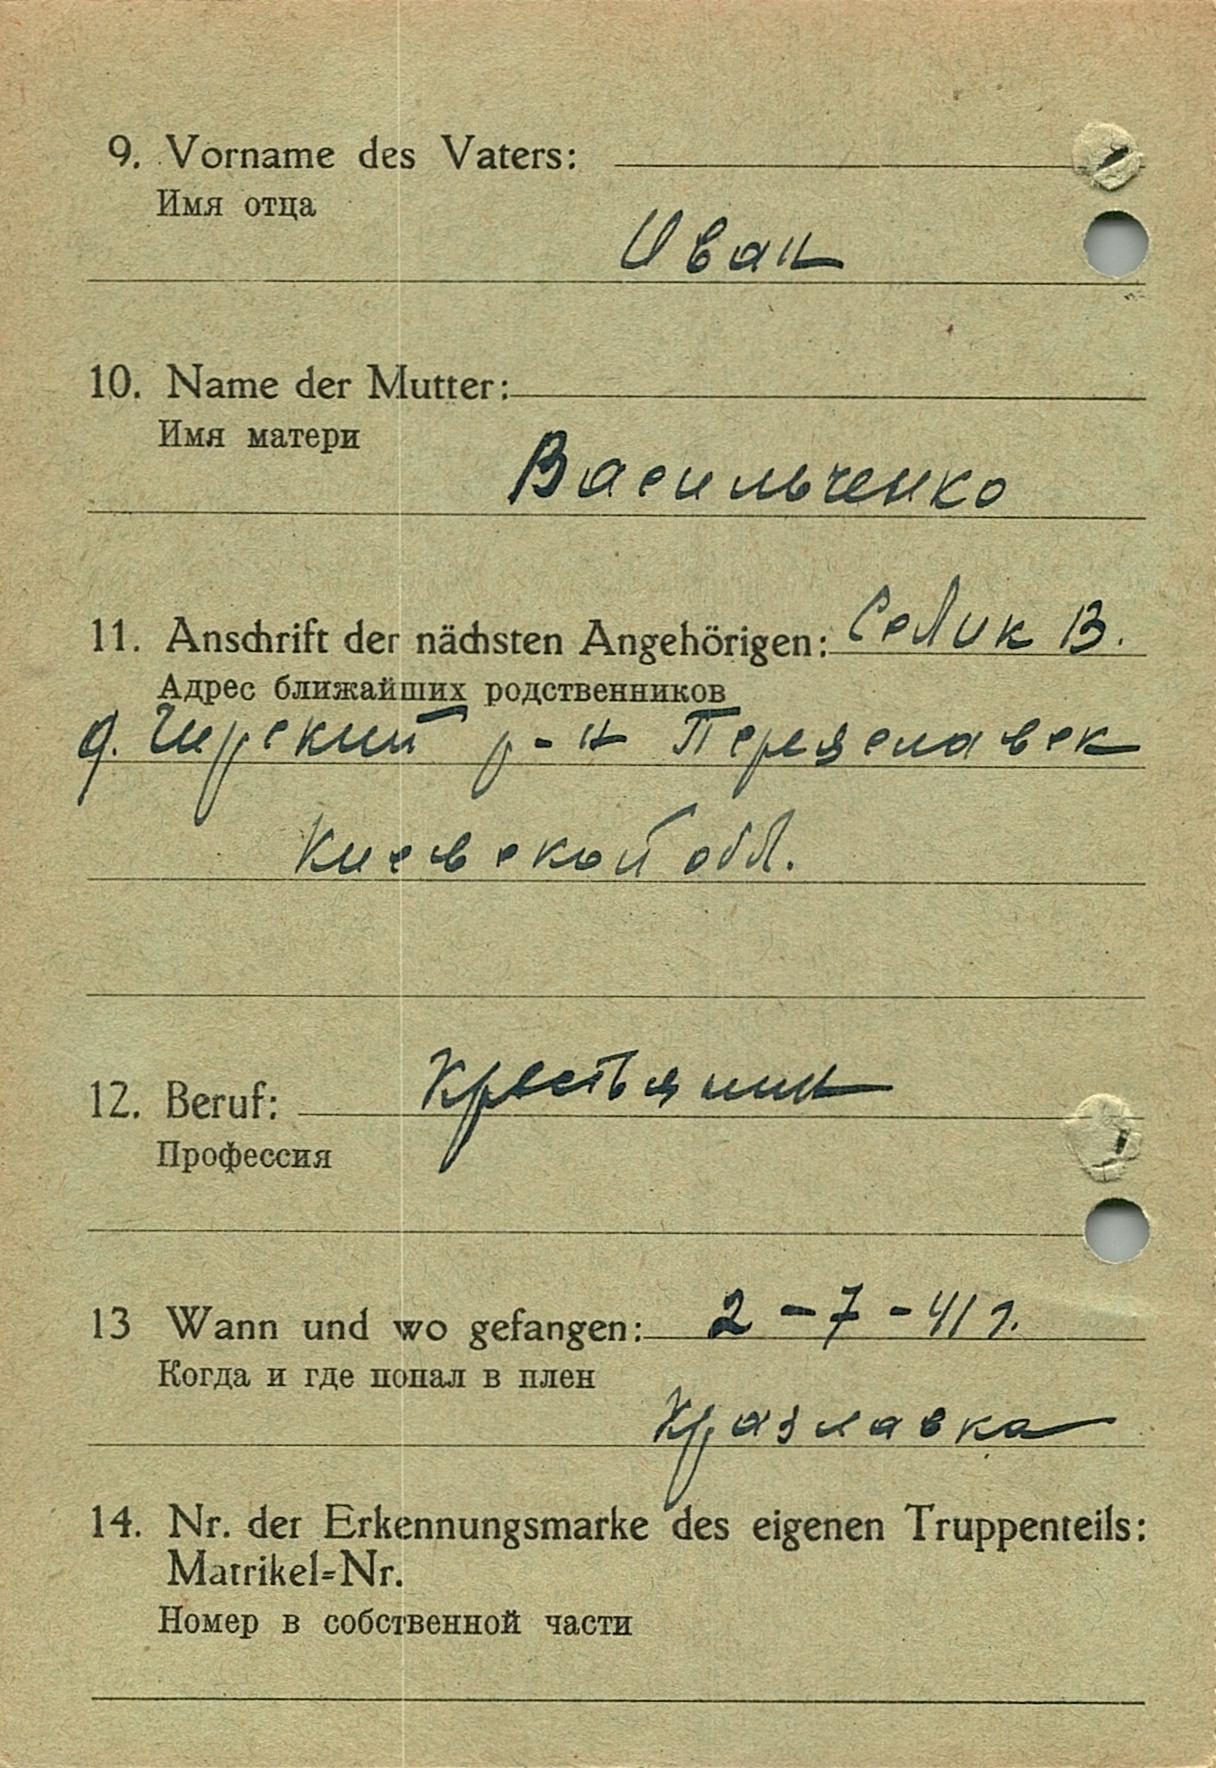 9. Vorname des Vaters:
Имя отца
Иван
10. Name der Mutter:
Имя матери
Васильченко
11. Anschrift der nächsten Angehörigen: Селик В.
Адрес ближайших родственников
д. Гирский р-н Переяславск
Киевской обл.
12. Beruf: Крестьянин
Профессия
13 Wann und wo gefangen: 2-7-41 г.
Когда и где попал в плен
Краславка
14. Nr. der Erkennungsmarke des eigenen Truppenteils:
Matrikel-Nr.
Номер в собственной части